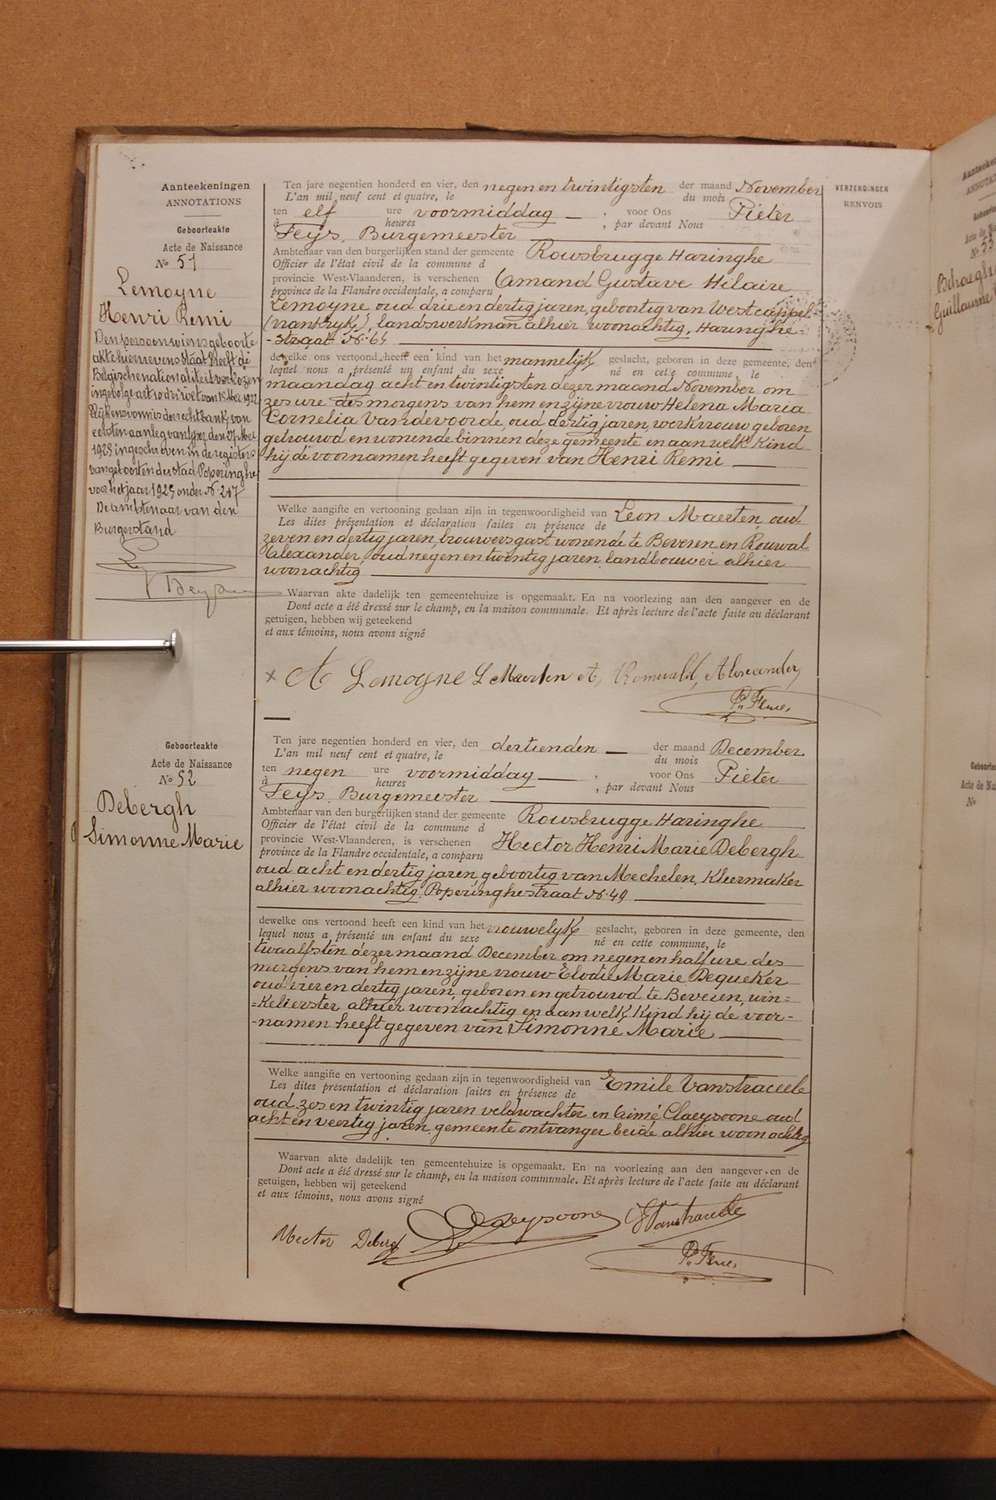 Aanteekeningen
ANNOTATIONS
Geboorteakte
Acte de Naissance
No 51
Lemoyne
Henri Remi
Den persoon wiens geboorte
akte hiernevens staat heeft de
Belgische nationaliteit verloren
ingevolge art. 10 der wet van 15 Mei 1922
Blijkens vonnis der rechtbank van
eersten aanleg van Yper, den 27 Mei
1925 ingeschreven in de registers
van geboorten der stad Poperinghe
voor het jaar 1925 onder Nr 217
De ambtenaar van den
Burgerstand
Ten jare negentien honderd en vier, den negen en twintigsten der maand November
L'an mil neuf cent et quatre, le du mois
ten elf ure voormiddag — , voor Ons Pieter
à heures , par devant Nous
Feys, Burgemeester
Ambtenaar van den burgerlijken stand der gemeente Rousbrugge Haringhe
Officier de l'état civil de la commune d
provincie West-Vlaanderen, is verschenen Amand Gustave Hilaire
province de la Flandre occidentale, a comparu
Lemoyne oud drie en dertig jaren, geboortig van Westcappel
(vrankryk), landswerkman alhier woonachtig, Haringhe-
-straat Nr 64
dewelke ons vertoond heeft een kind van het mannelijk geslacht, geboren in deze gemeente, den
lequel nous a présenté un enfant du sexe né en cette commune, le
maandag acht en twintigsten dezer maand November om
zes ure des morgens van hem en zijne vrouw Helena Maria
Cornelia Vandevoorde, oud dertig jaren, werkvrouw geboren
getrouwd en wonende binnen deze gemeente en aan welk kind
hij de voornamen heeft gegeven van Henri Remi
Welke aangifte en vertooning gedaan zijn in tegenwoordigheid van Leon Maerten, oud
Les dites présentation et déclaration faites en présence de
zeven en dertig jaren, brouwersgast wonende te Beveren en
Alexander, oud negen en twintig jaren, landbouwer alhier
woonachtig
Waarvan akte dadelijk ten gemeentehuize is opgemaakt. En na voorlezing aan den aangever en de
Dont acte a été dressé sur le champ, en la maison communale. Et après lecture de l'acte faite au déclarant
getuigen, hebben wij geteekend
et aux témoins, nous avons signé
x A Lemoyne L Maerten A, Romuald, Alexander,
P. Feys.
VERZENDINGEN
RENVOIS
Geboorteakte
Acte de Naissance
No 52
Debergh
Simonne Marie
Ten jare negentien honderd en vier, den dertienden — der maand December
L'an mil neuf cent et quatre, le du mois
ten negen ure voormiddag — , voor Ons Pieter
à heures , par devant Nous
Feys, Burgemeester
Ambtenaar van den burgerlijken stand der gemeente Rousbrugge Haringhe
Officier de l'état civil de la commune d
provincie West-Vlaanderen, is verschenen Hector Henri Marie Debergh
province de la Flandre occidentale, a comparu
oud acht en dertig jaren, geboortig van Mechelen, Kleermaker
alhier woonachtig, Poperinghestraat Nr 49
dewelke ons vertoond heeft een kind van het vrouwelyk geslacht, geboren in deze gemeente, den
lequel nous a présenté un enfant du sexe né en cette commune, le
twaalfsten dezer maand December om negen en half ure des
morgens van hem en zijne vrouw Elodie Marie Dequeker
oud vier en dertig jaren, geboren en getrouwd te Beveren, win-
-kelierster alhier woonachtig en aan welk kind hij de voor-
-namen heeft gegeven van Simonne Marie
Welke aangifte en vertooning gedaan zijn in tegenwoordigheid van Emile Vanstraceele
Les dites présentation et déclaration faites en présence de
oud zes en twintig jaren veldwachter en Aimé Claeysoone oud
acht en veertig jaren, gemeente ontvanger beide alhier woonachtig
Waarvan akte dadelijk ten gemeentehuize is opgemaakt. En na voorlezing aan den aangever en de
Dont acte a été dressé sur le champ, en la maison communale. Et après lecture de l'acte faite au déclarant
getuigen, hebben wij geteekend
et aux témoins, nous avons signé
Hector Debergh Claeysoone Vanstraceele
P. Feys.